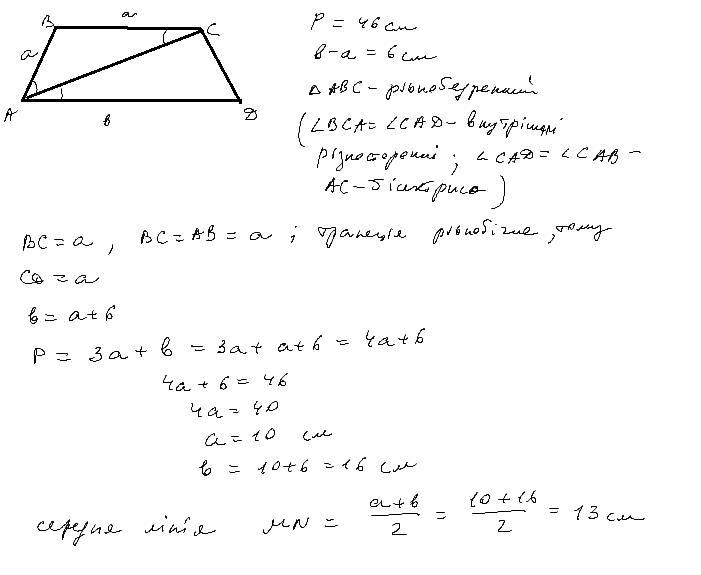 a
B
C
a
A
D
b
P = 46 см
b - a = 6 см
△ABC - рівнобедрений
(∠BCA = ∠CAD - внутрішні
різносторонні; ∠CAD = ∠CAB -
AC - бісектриса)
BC = a, BC = AB = a; трапеція рівнобічна, тому
CD = a
b = a + 6
P = 3a + b = 3a + a + 6 = 4a + 6
4a + 6 = 46
4a = 40
a = 10 см
b = 10 + 6 = 16 см
середня лінія MN = (a + b)/2 = (10 + 16)/2 = 13 см